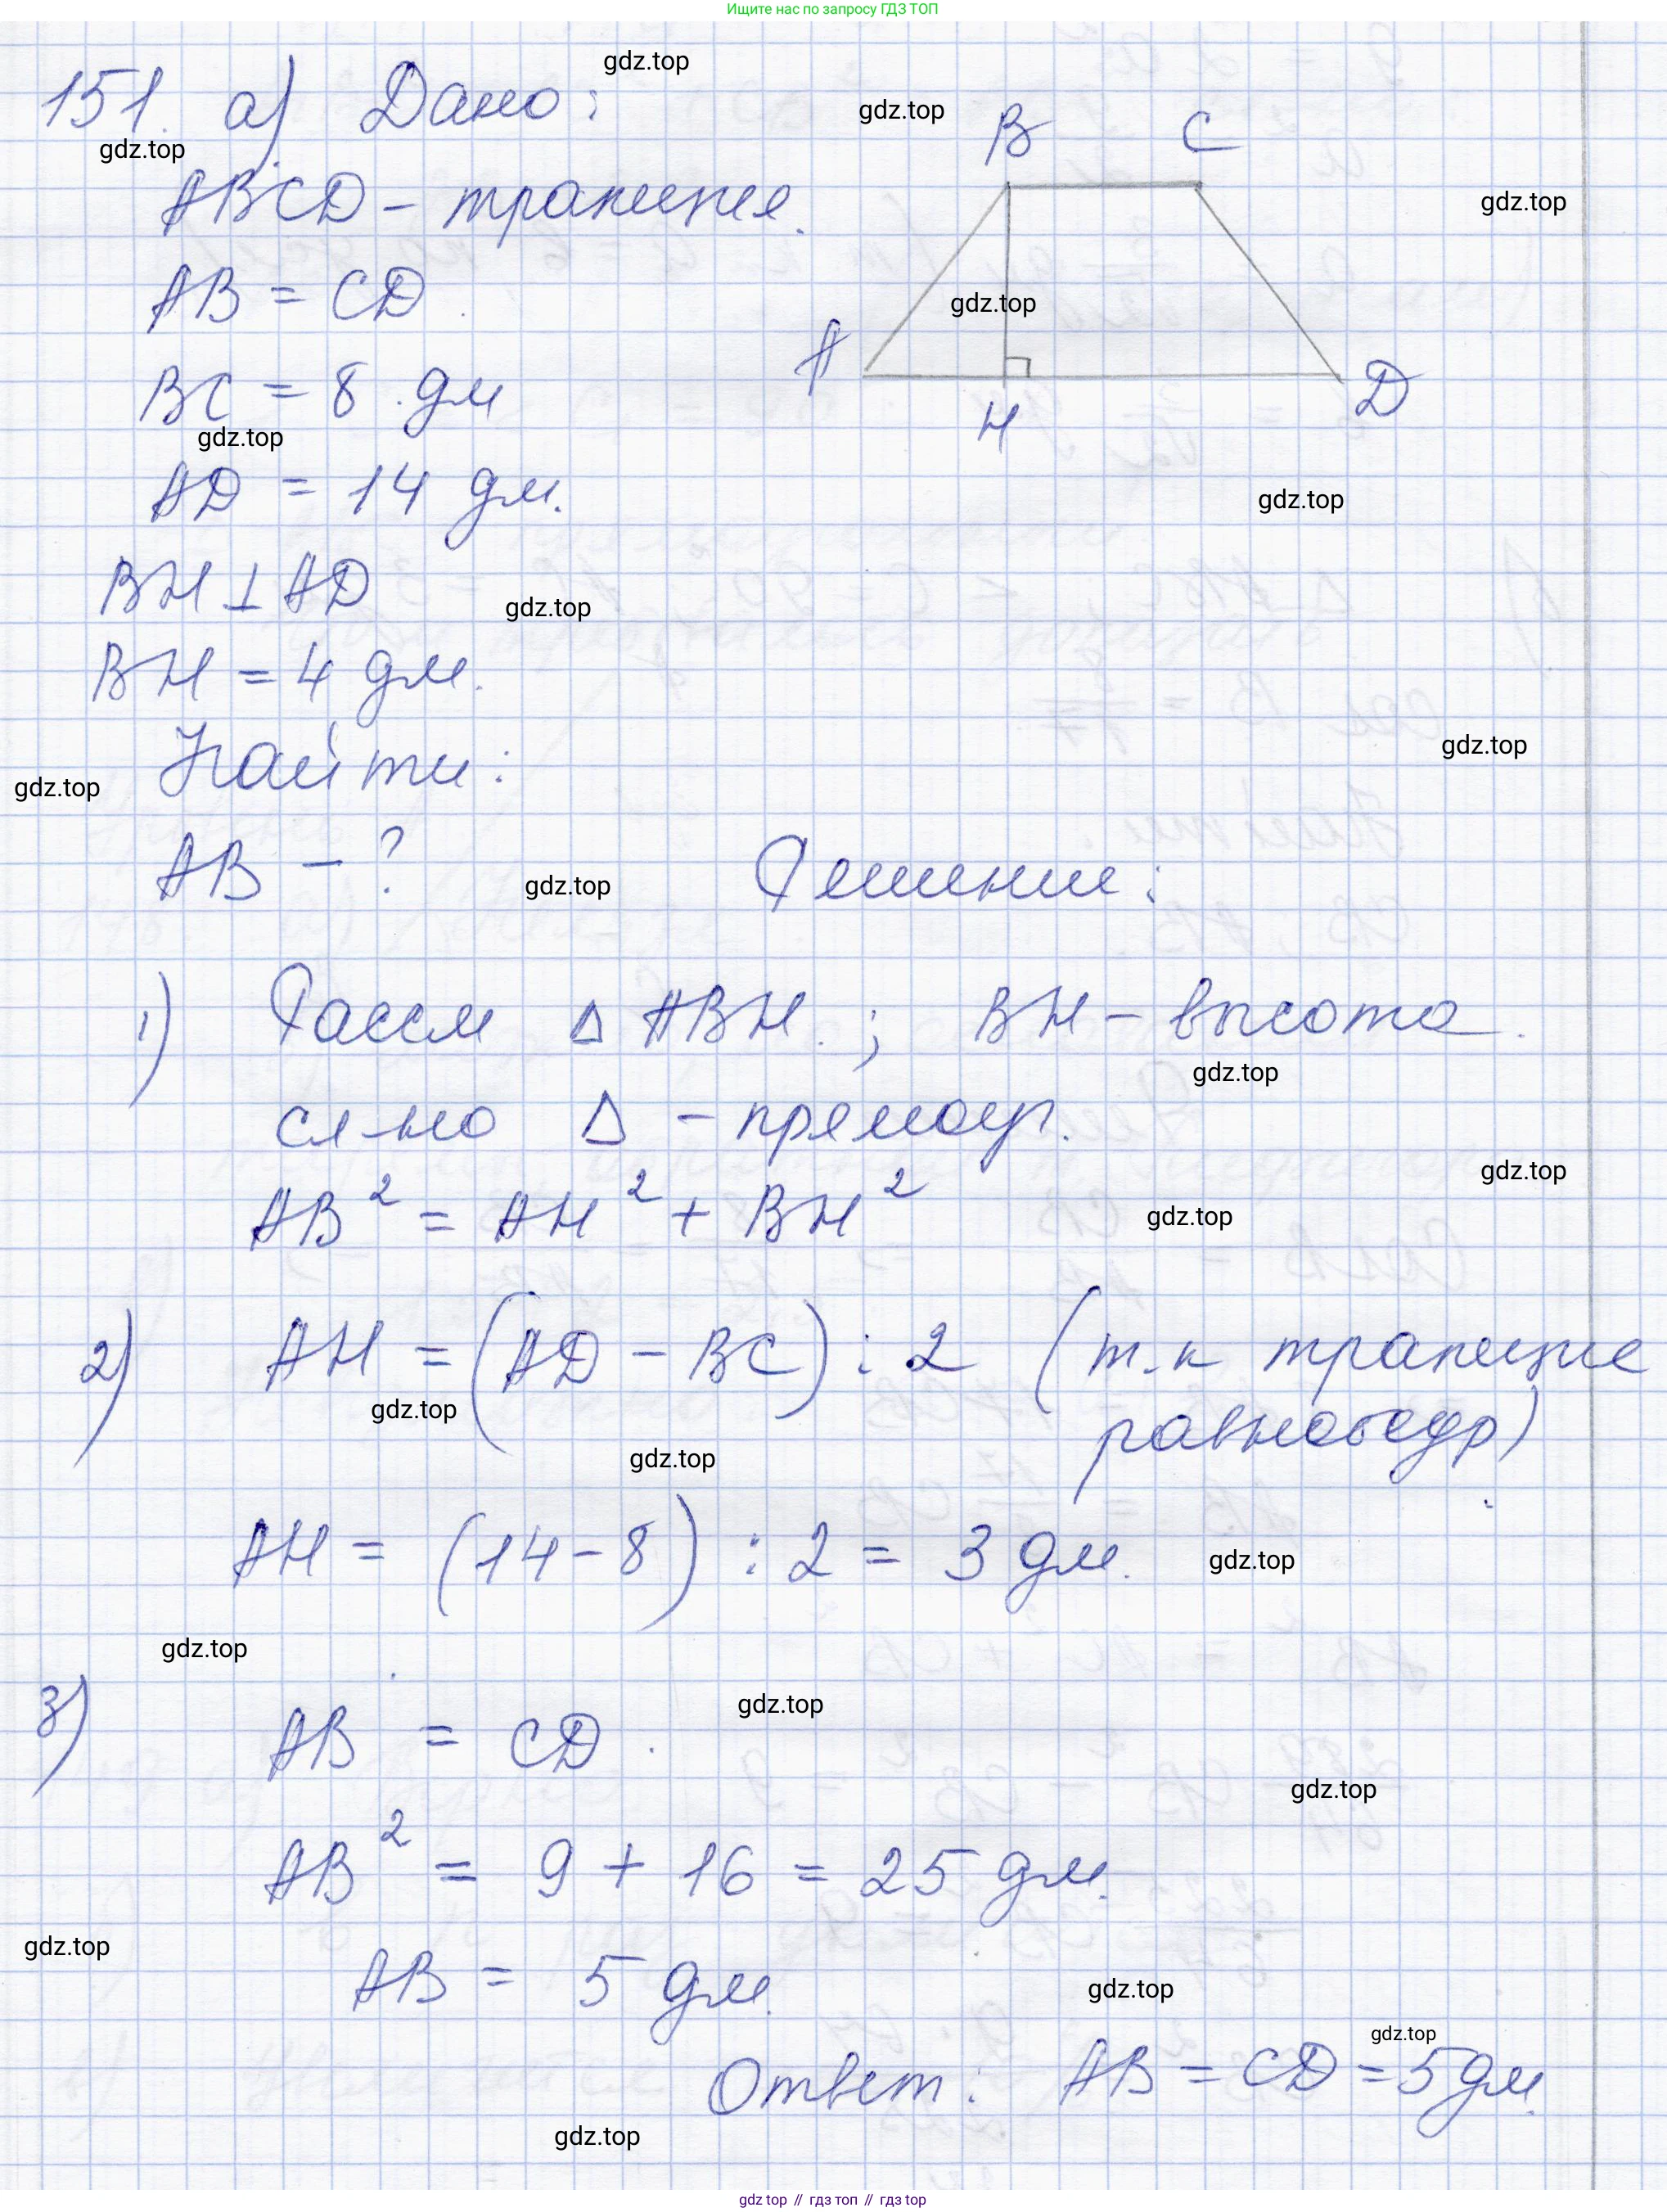 Ищите нас по запросу ГДЗ ТОП
gdz.top
151. а) Дано:
gdz.top
B C
gdz.top
ABCD - трапеция.
gdz.top
AB = CD
gdz.top
A
BC = 8 дм
D
H
gdz.top
AD = 14 дм.
gdz.top
BH ⊥ AD
gdz.top
BH = 4 дм.
Найти:
gdz.top
gdz.top
AB - ?
gdz.top
Решение:
1) Рассм △ ABH. ; BH - высота.
gdz.top
сл-но △ - прямоуг.
gdz.top
AB² = AH² + BH²
gdz.top
2) AH = (AD - BC) : 2 (т.к трапеция
gdz.top
равнобедр)
gdz.top
AH = (14 - 8) : 2 = 3 дм.
gdz.top
gdz.top
3) AB = CD.
gdz.top
gdz.top
AB² = 9 + 16 = 25 дм.
gdz.top
AB = 5 дм.
gdz.top
gdz.top
Ответ: AB = CD = 5 дм.
gdz.top
gdz top // гдз топ // гдз top